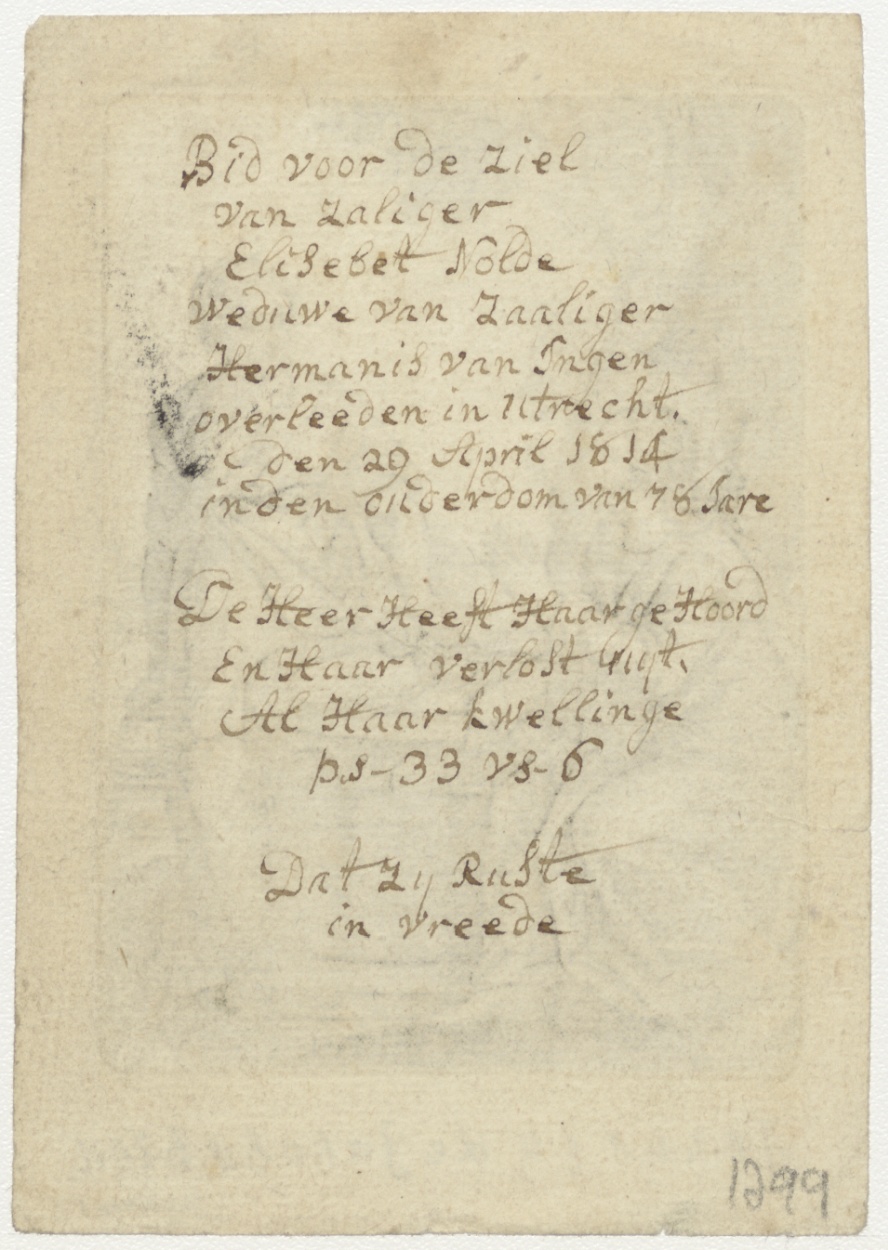 Bid voor de Ziel
van Zaliger
Elisebet Nolde
weduwe van Zaaliger
Hermanis van Ingen
overleeden in Utrecht.
den 29 April 1814
in den ouderdom van 78 Jare
De Heer Heeft Haar ge Hoord
En Haar verlost uijt.
Al Haar kwellinge
ps-33 vs-6
Dat Zy Ruste
in vreede
1299